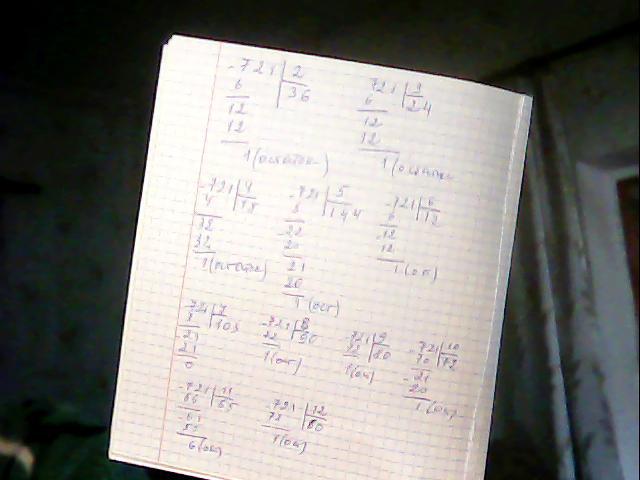 -721 | 2
6 | 36
12
12
1 (остаток)
721 | 3
6 | 24
12
12
1 (остаток
-721 | 4
4 | 18
32
32
1 (остаток)
-721 | 5
5 | 144
-22
20
21
20
1 (ост)
-721 | 6
6 | 12
-12
12
1 (ос)
-721 | 7
7 | 103
-21
21
0
-721 | 8
72 | 90
1 (ос)
721 | 9
72 | 80
1 (ос)
-721 | 10
70 | 72
-21
20
1 (ос)
-721 | 11
66 | 65
-61
55
6 (ос)
-721 | 12
72 | 60
1 (ос)